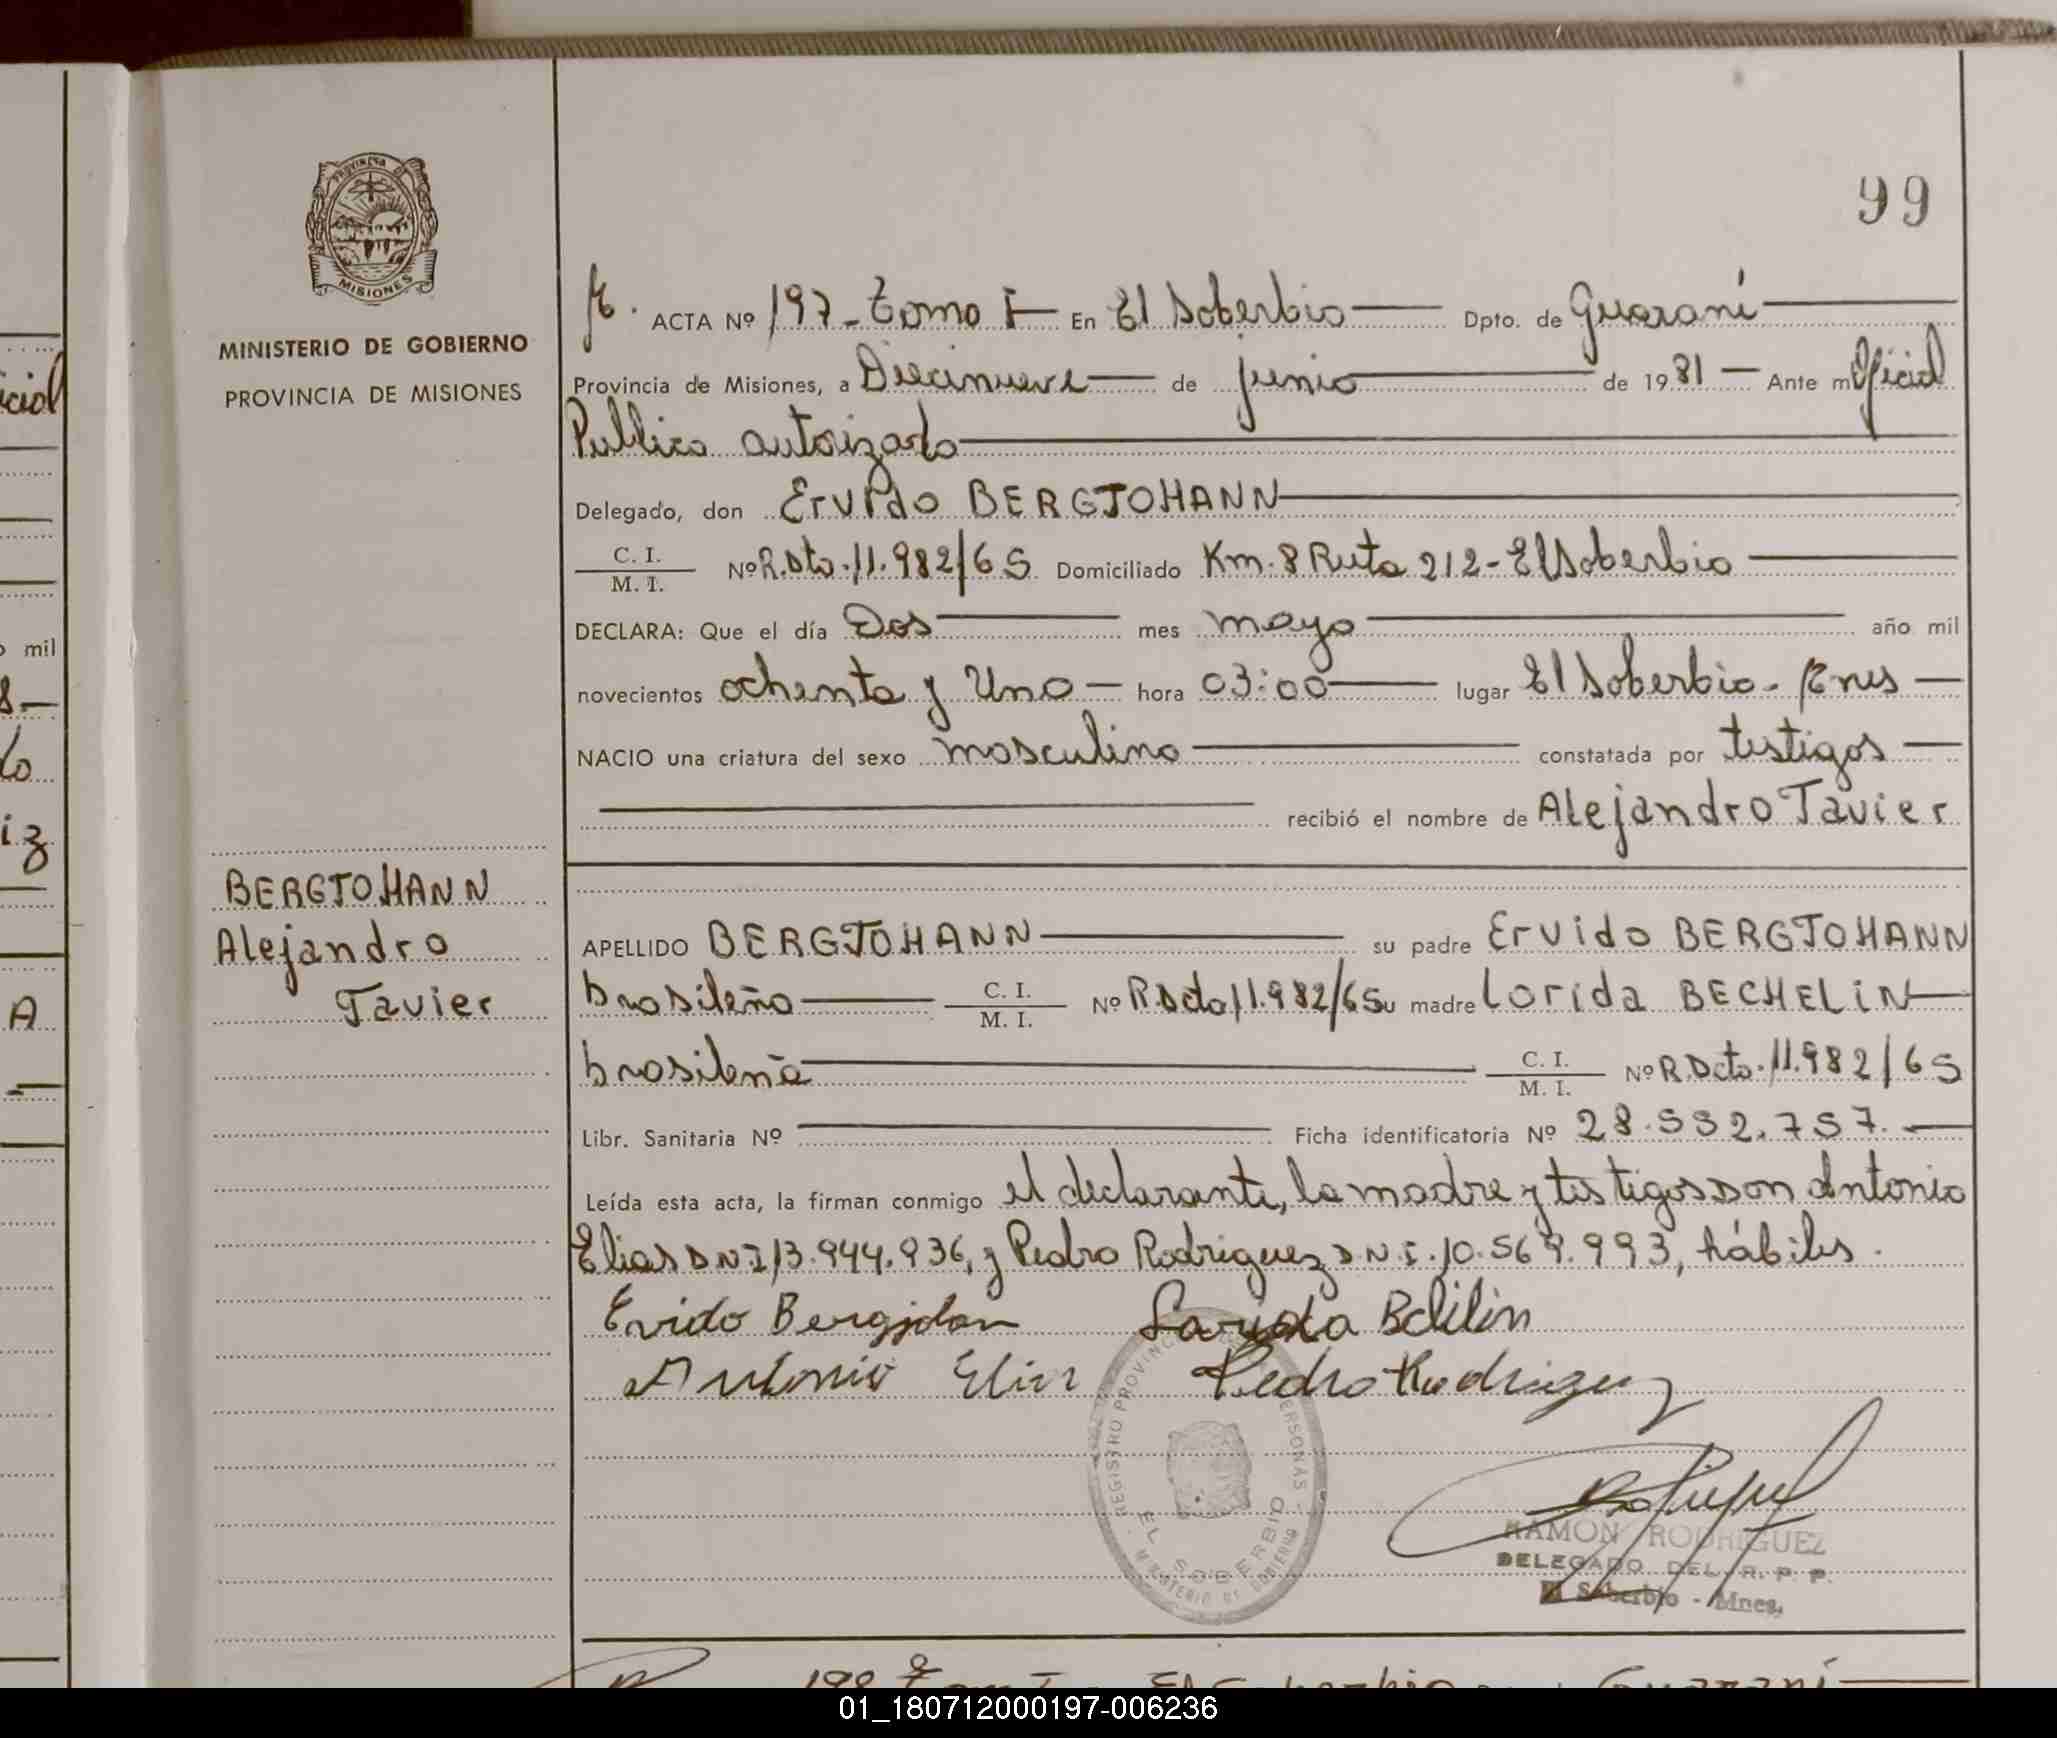 99
PROVINCIA D
MISIONES
MINISTERIO DE GOBIERNO
PROVINCIA DE MISIONES
ACTA Nº 197 - Tomo I - En El Soberbio Dpto. de Guaraní
Provincia de Misiones, a Diecinueve de junio de 1981 Ante mi Oficial
Publico autorizado
Delegado, don Ervido BERGJOHANN
C. I. / M. I. Nº R.Dto. 11.982/65 Domiciliado Km. 8 Ruta 212 - El Soberbio
DECLARA: Que el día Dos mes mayo año mil
novecientos ochenta y Uno hora 03:00 lugar El Soberbio -
NACIO una criatura del sexo masculino constatada por testigos
recibió el nombre de Alejandro Javier
BERGJOHANN
Alejandro
Javier
APELLIDO BERGJOHANN su padre Ervido BERGJOHANN
brasileño C. I. / M. I. Nº R.Dcto 11.982/65 su madre Lorida BECHELIN
brasileña C. I. / M. I. Nº R.Dcto. 11.982/65
Libr. Sanitaria Nº Ficha identificatoria Nº 28.532.757.
Leída esta acta, la firman conmigo el declarante, la madre y testigos Don Antonio
Elias D.N.I 13.944.936, y Pedro Rodriguez D.N.I. 10.569.993, hábiles.
Evido Bergjolan
Antonio Elias Pedro Rodriguez
REGISTRO PROVINCIAL PERSONAS
EL SOBERBIO
MINISTERIO DE GOBIERNO
RAMON RODRIGUEZ
DELEGADO DEL R. P. P.
El Soberbio - Mnes.
01_180712000197-006236